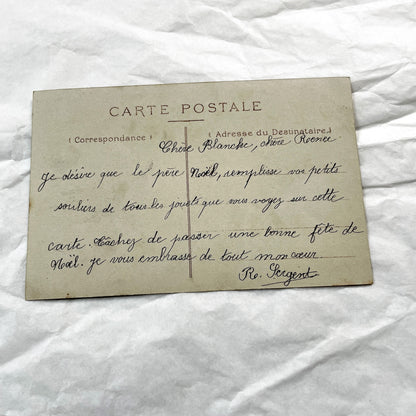 CARTE POSTALE
( Correspondance )
( Adresse du Destinataire )
Chère Blanche, chère Renée
Je désire que le père Noël, remplisse vos petits
souliers de tous les jouets que vous voyez sur cette
carte. Tachez de passer une bonne fête de
Noël. je vous embrasse de tout mon cœur.
R. Sergent